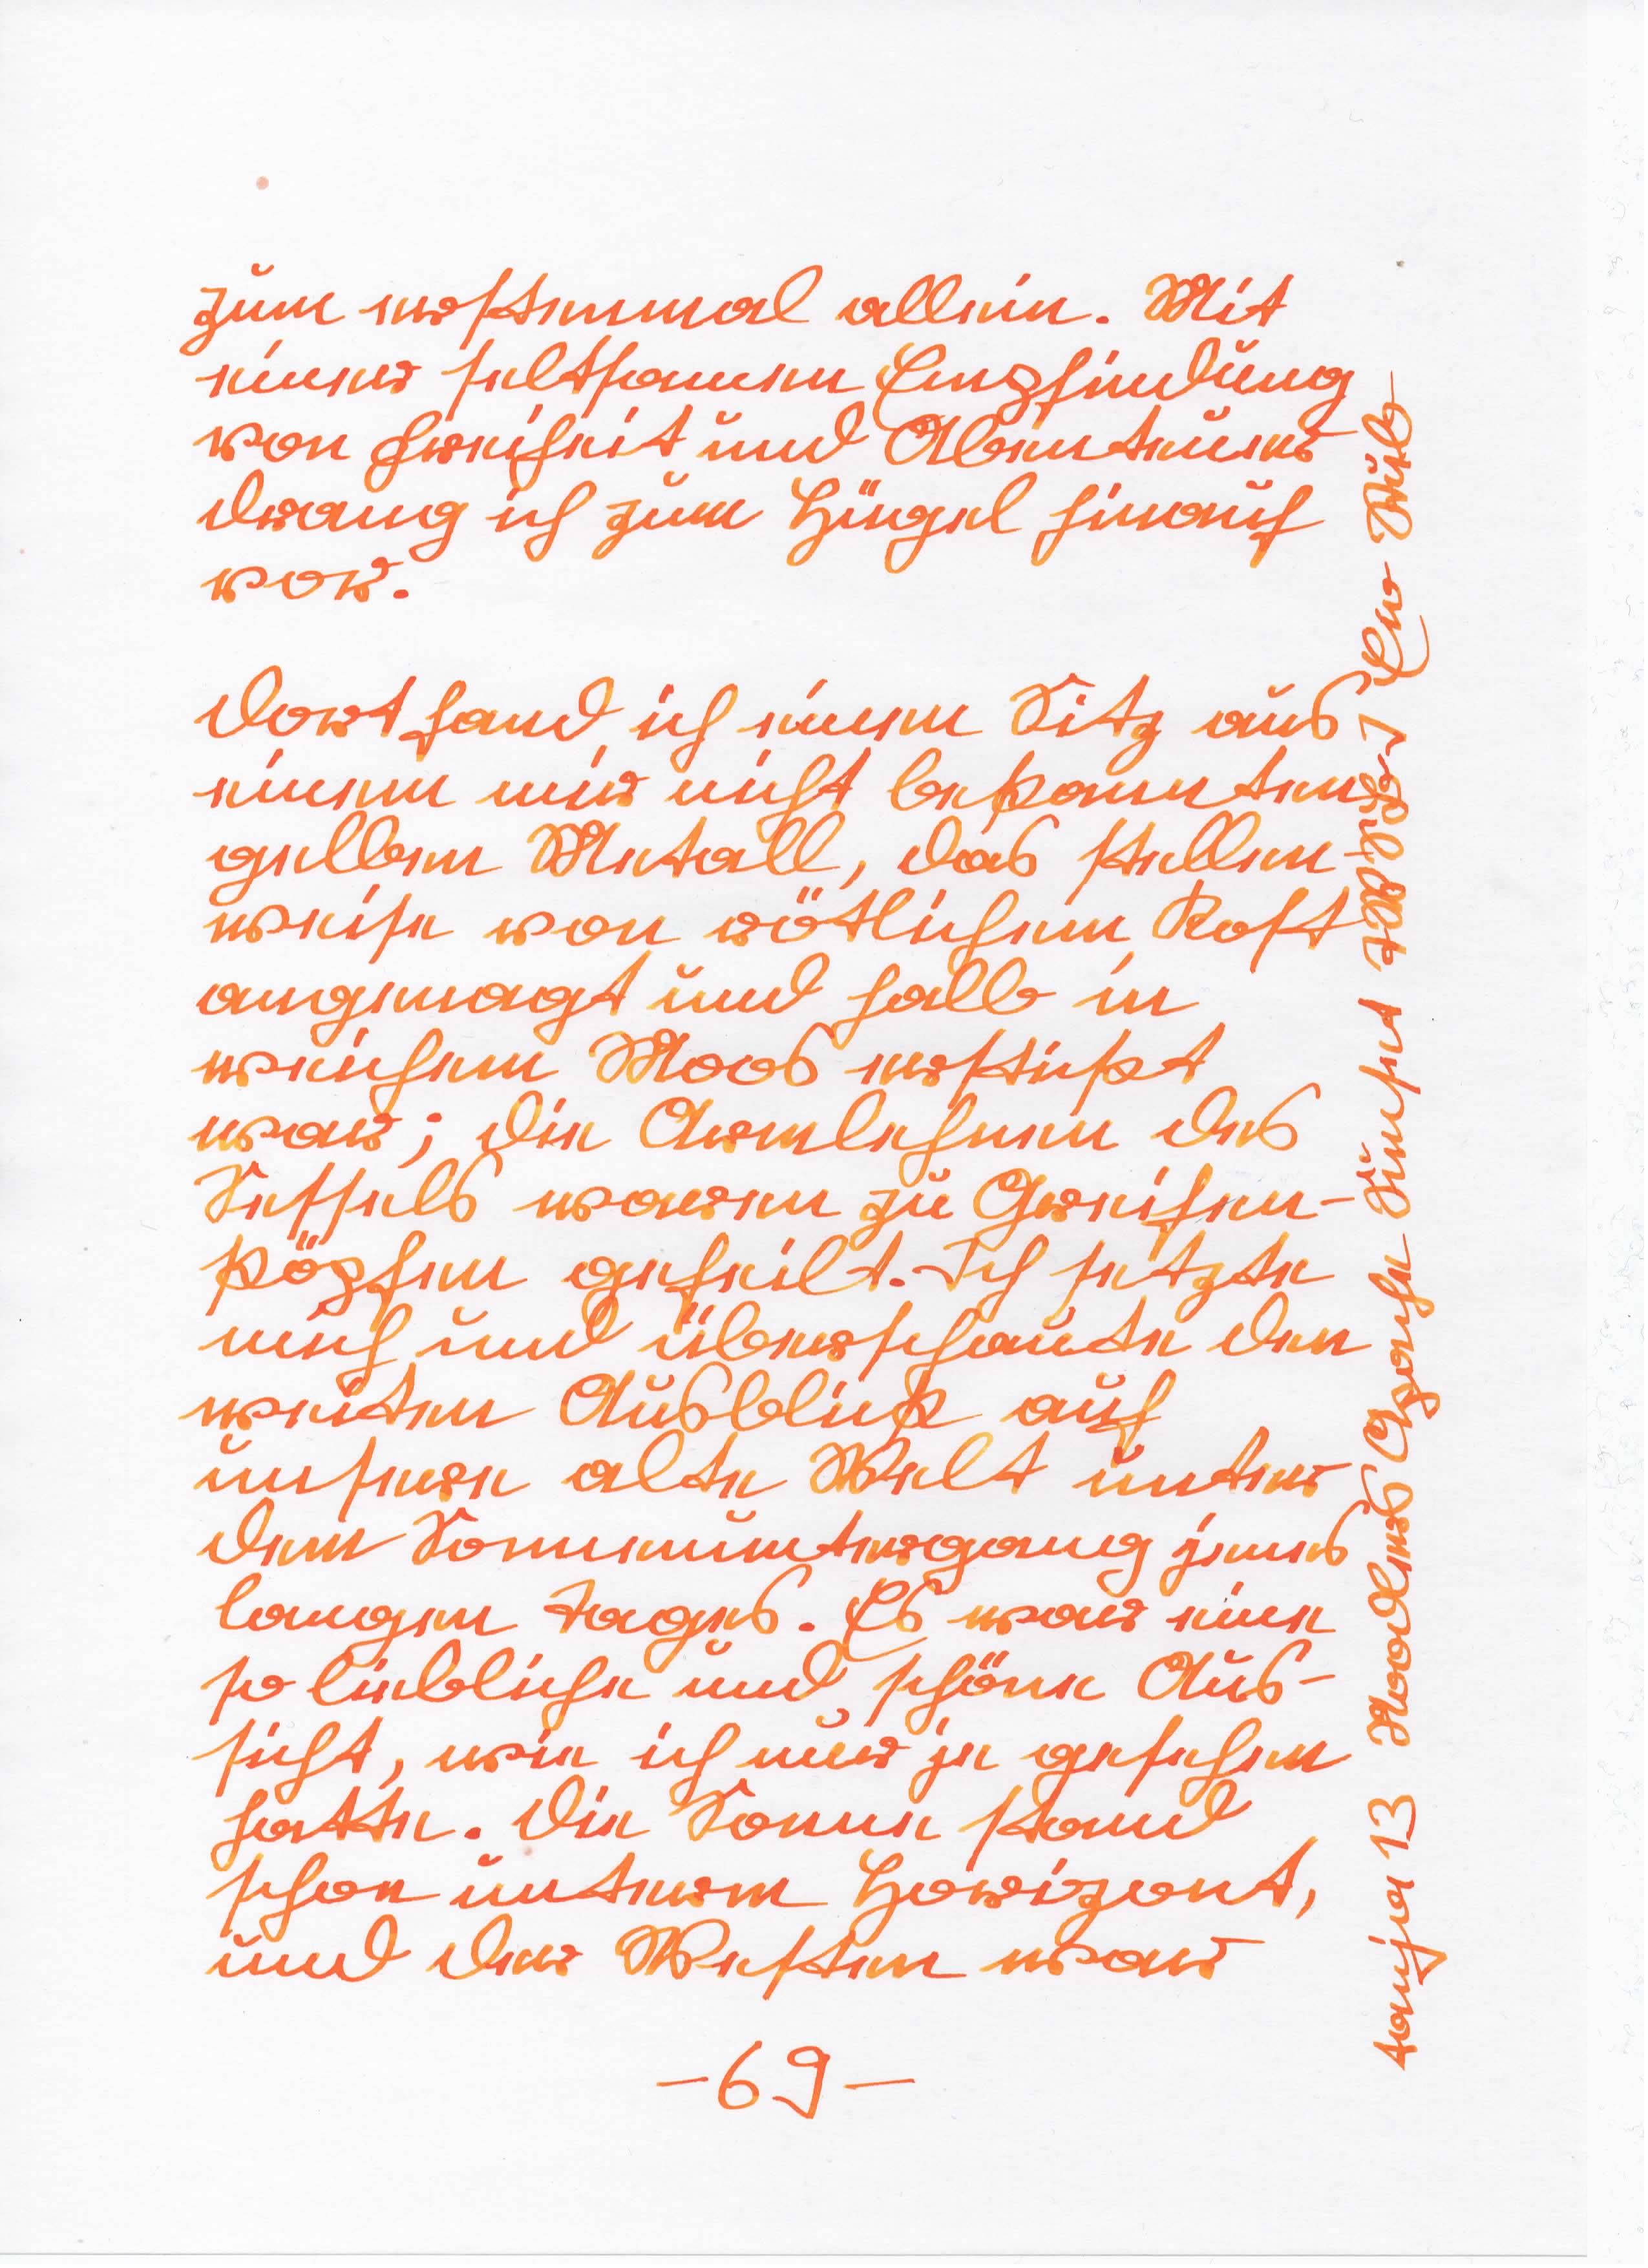 zum erstenmal allein. Mit
einer seltsamen Empfindung
von Freiheit und Abenteuer
drang ich zum Hügel hinauf
vor.
Dort fand ich einen Sitz aus
einem mir nicht bekannten
gelben Metall, das stellen-
weise von rötlichem Rost
angenagt und halb in
weichem Moos erstickt
war; die Armlehnen des
Sessels waren zu Greifen-
köpfen gefeilt. Ich setzte
mich und überschaute den
weiten Ausblick auf
unsere alte Welt unter
dem Sonnenuntergang jenes
langen Tages. Es war eine
so liebliche und schöne Aus-
sicht, wie ich nur je gesehen
hatte. Die Sonne stand
schon unterm Horizont,
und der Westen war
-69-